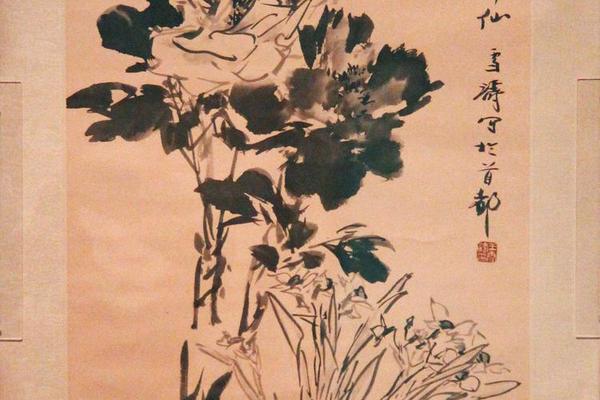 仙 雪濤写於首都